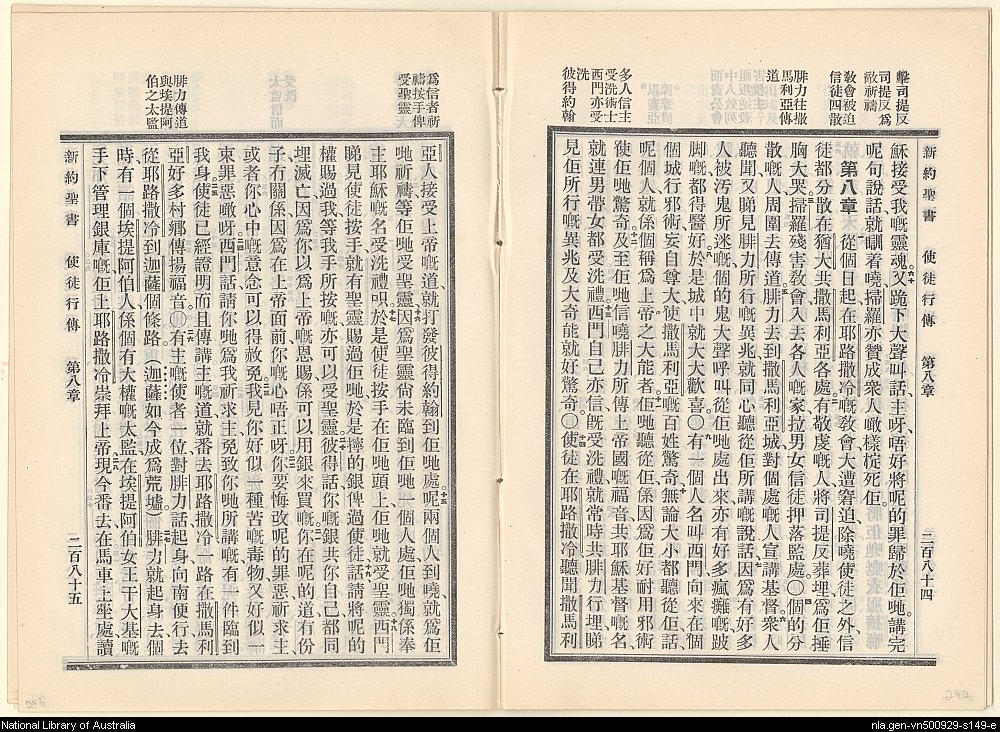 擊司提反
司提反爲
敵祈禱
敎會被迫
信徒四散
腓力往撒
馬利亞傳
道
多人信主
受洗術士
西門亦受
洗
彼得約翰
新約聖書 使徒行傳 第八章 二百八十四
穌接受我嘅靈魂又跪下大聲叫話主呀唔好將呢的罪歸於佢哋講完
呢句說話就瞓着嘵掃羅亦贊成衆人噉樣椗死佢
第八章 從個日起在耶路撒冷嘅敎會大遭窘迫除嘵使徒之外信
徒都分散在猶大共撒馬利亞各處有敬虔嘅人將司提反葬埋爲佢捶
胸大哭掃羅殘害敎會入去各人嘅家拉男女信徒押落監處〇個的分
散嘅人周圍去傳道腓力去到撒馬利亞城對個處嘅人宣講基督衆人
聽聞又睇見腓力所行嘅異兆就同心聽從佢所講嘅說話因爲有好多
人被汚鬼所迷嘅個的鬼大聲呼叫從佢哋處出來亦有好多瘋癱嘅跛
脚嘅都得醫好於是城中就大大歡喜〇有一個人名叫西門向來在個
個城行邪術妄自尊大使撒馬利亞嘅百姓驚奇無論大小都聽從佢話
呢個人就係個稱爲上帝之大能者佢哋聽從佢係因爲佢好耐用邪術
使佢哋驚奇及至佢哋信嘵腓力所傳上帝國嘅福音共耶穌基督嘅名
就連男帶女都受洗禮西門自己亦信旣受洗禮就常時共腓力行埋睇
見佢所行嘅異兆及大奇能就好驚奇〇使徒在耶路撒冷聽聞撒馬利
爲信者祈
禱按手俾
受聖靈
腓力傳道
與埃提阿
伯之太監
亞人接受上帝嘅道就打發彼得約翰到佢哋處呢兩個人到嘵就爲佢
哋祈禱等佢哋受聖靈因爲聖靈尙未臨到佢哋一個人處佢哋獨係奉
主耶穌嘅名受洗禮呮於是使徒按手在佢哋頭上佢哋就受聖靈西門
睇見使徒按手就有聖靈賜過佢哋於是擰的銀俾過使徒話請將呢的
權賜過我等我手所按嘅亦可以受聖靈彼得話你嘅銀共你自己都同
埋滅亡因爲你以爲上帝嘅恩賜係可以用銀來買嘅你在呢的道有份
子有關係因爲在上帝面前你嘅心唔正呀你要悔改呢的罪惡祈求主
或者你心中嘅意念可以得赦免我見你好似一種苦嘅毒物又好似一
束罪惡噉呀西門話請你哋爲我祈求主免致你哋所講嘅有一件臨到
我身使徒已經證明而且傳講主嘅道就番去耶路撒冷一路在撒馬利
亞好多村鄉傳揚福音〇有主嘅使者一位對腓力話起身向南便行去
從耶路撒冷到迦薩個條路迦薩如今成爲荒墟腓力就起身去個
時有一個埃提阿伯人係個有大權嘅太監在埃提阿伯女王干大基嘅
手下管理銀庫嘅佢上耶路撒冷崇拜上帝現今番去在馬車上座處讀
新約聖書 使徒行傳 第八章 二百八十五
295
292
National Library of Australia
nla.gen-vn500929-s149-e